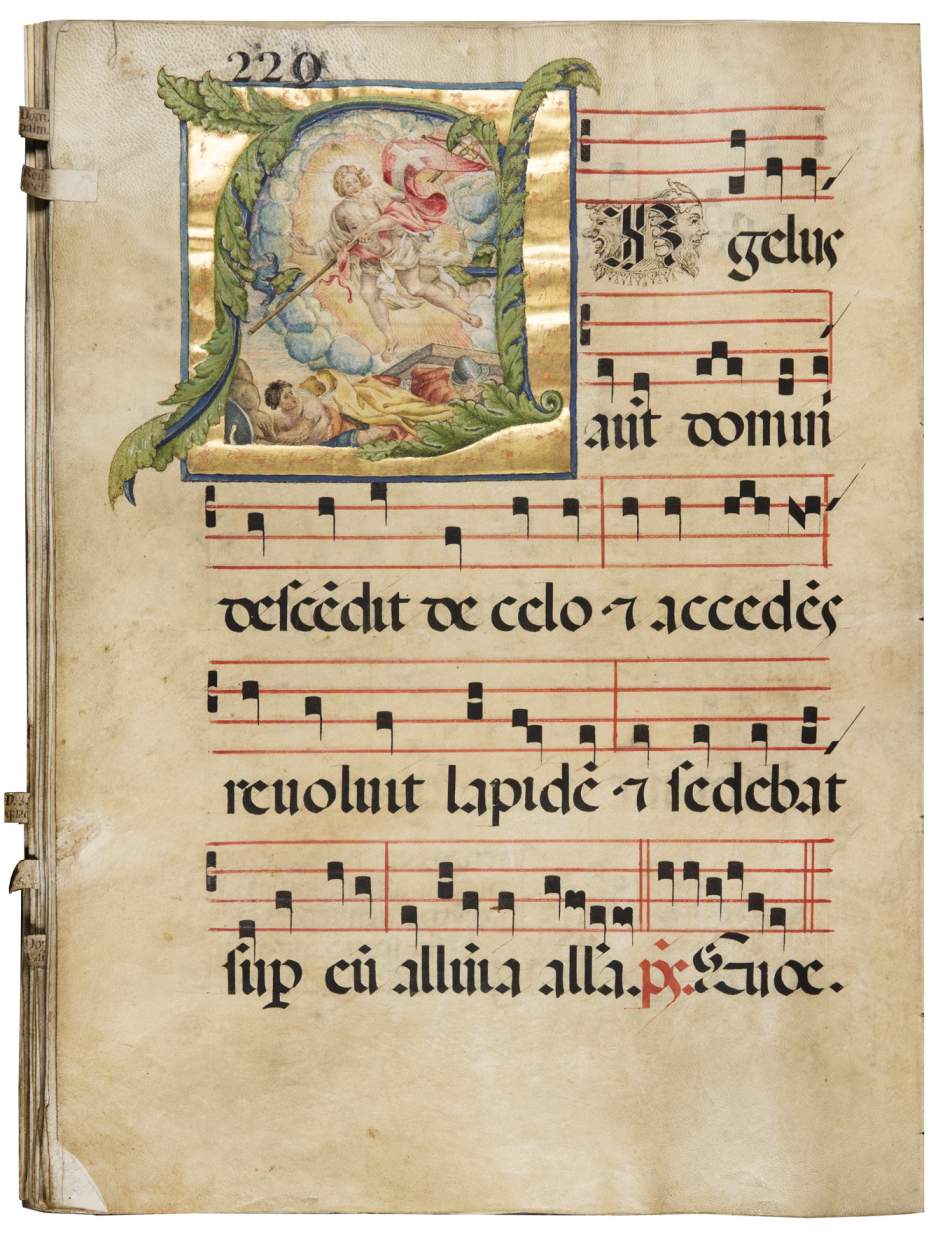 220
ANgelus
aut̄ domini
deſcēdit de celo · ⁊ accedēs
reuoluit lapidē · ⁊ ſedebat
ſup eū alluia alla. ps. Euoe.